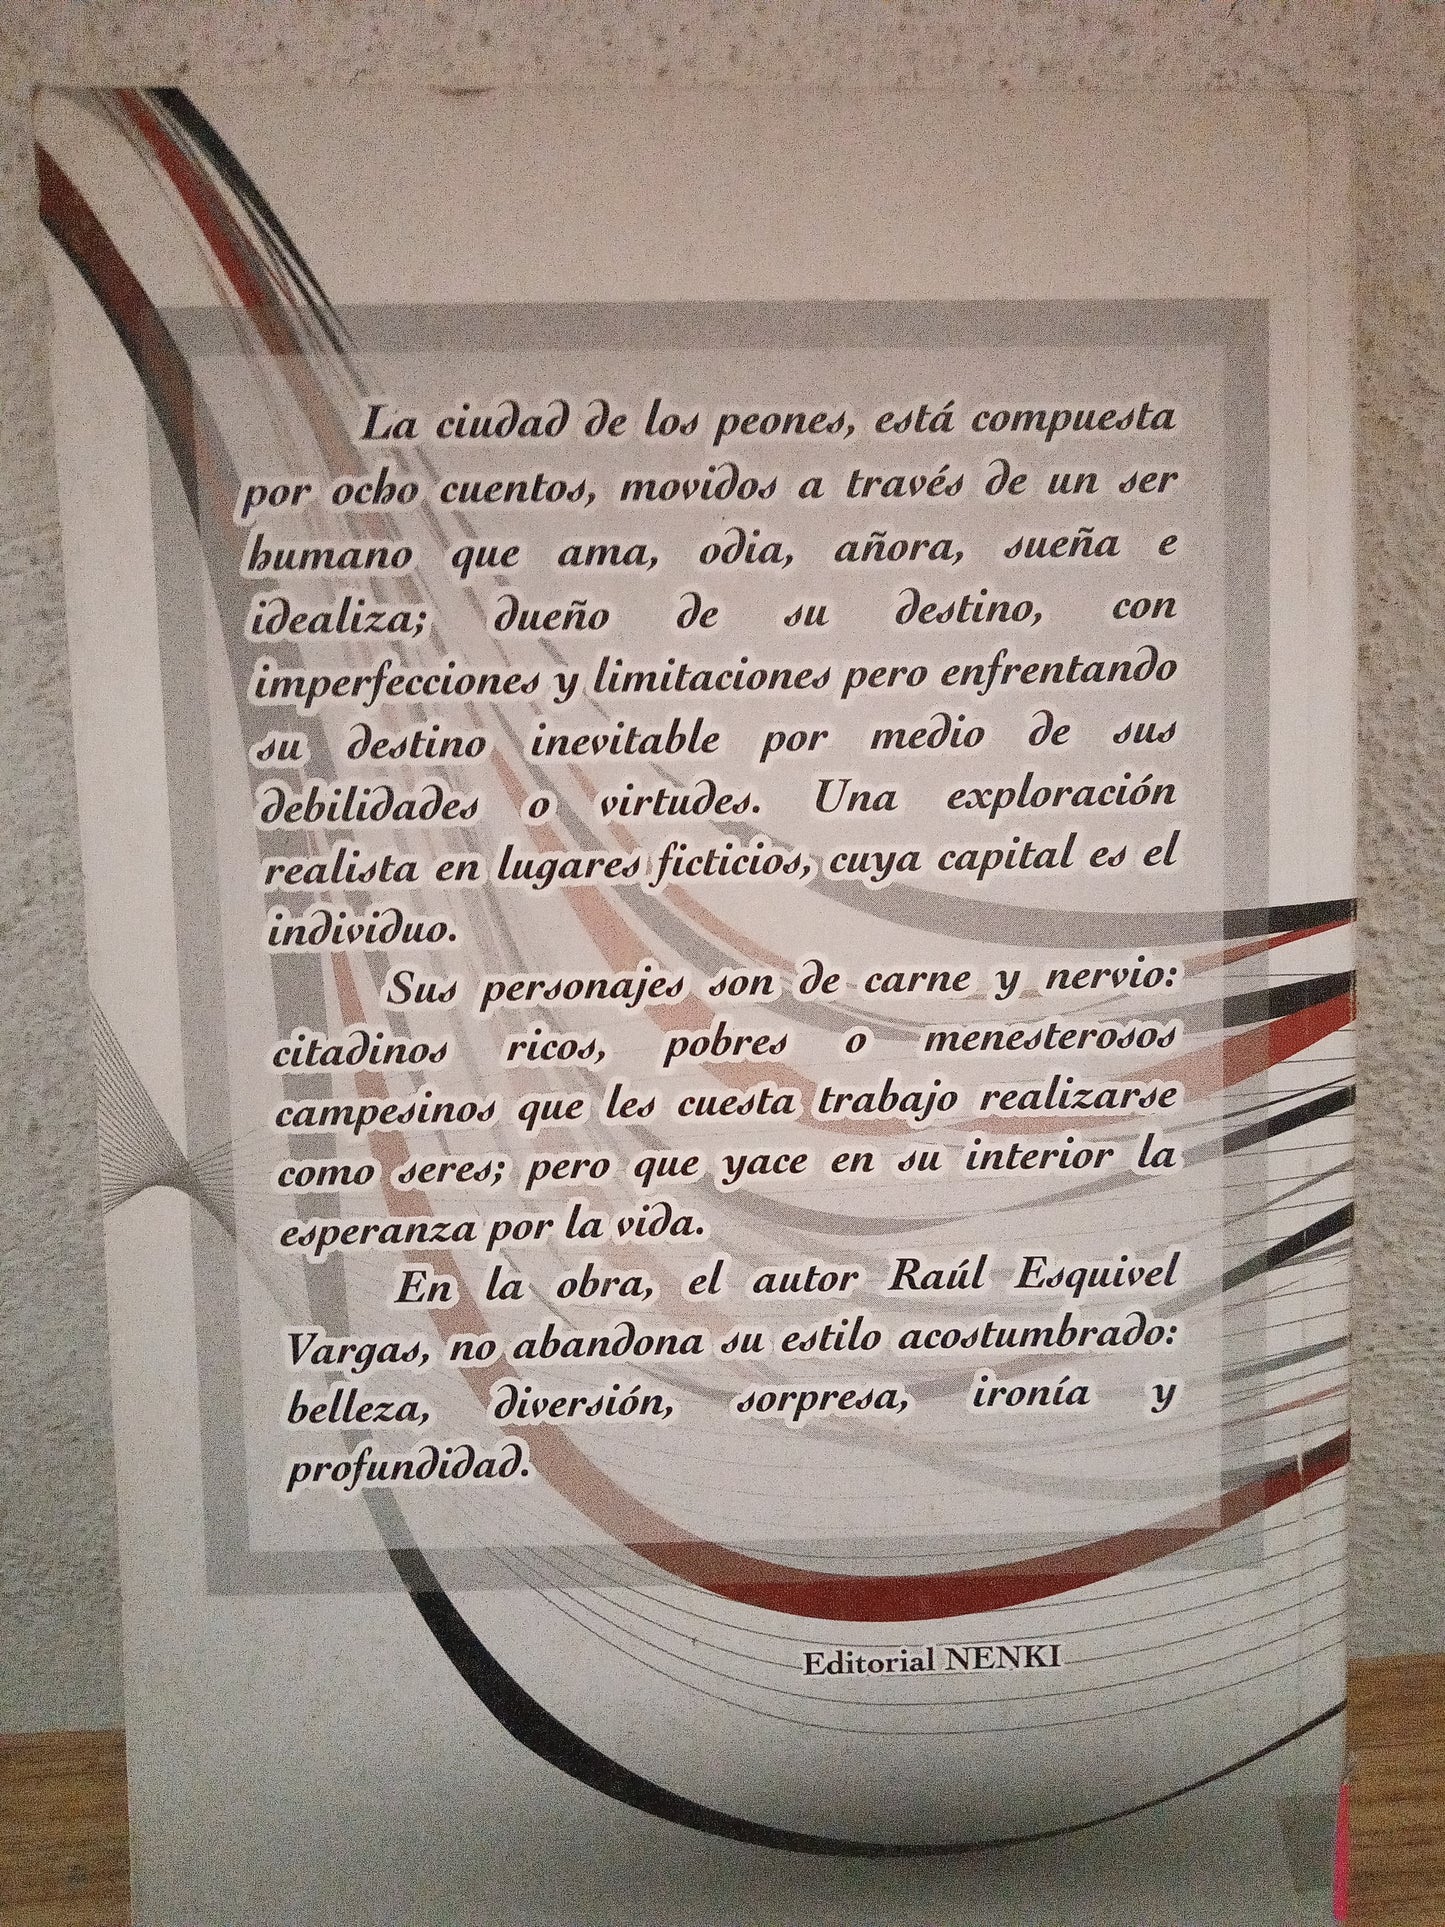 La ciudad de los peones, está compuesta
por ocho cuentos, movidos a través de un ser
humano que ama, odia, añora, sueña e
idealiza; dueño de su destino, con
imperfecciones y limitaciones pero enfrentando
su destino inevitable por medio de sus
debilidades o virtudes. Una exploración
realista en lugares ficticios, cuya capital es el
individuo.
Sus personajes son de carne y nervio:
citadinos ricos, pobres o menesterosos
campesinos que les cuesta trabajo realizarse
como seres; pero que yace en su interior la
esperanza por la vida.
En la obra, el autor Raúl Esquivel
Vargas, no abandona su estilo acostumbrado:
belleza, diversión, sorpresa, ironía y
profundidad.
Editorial NENKI